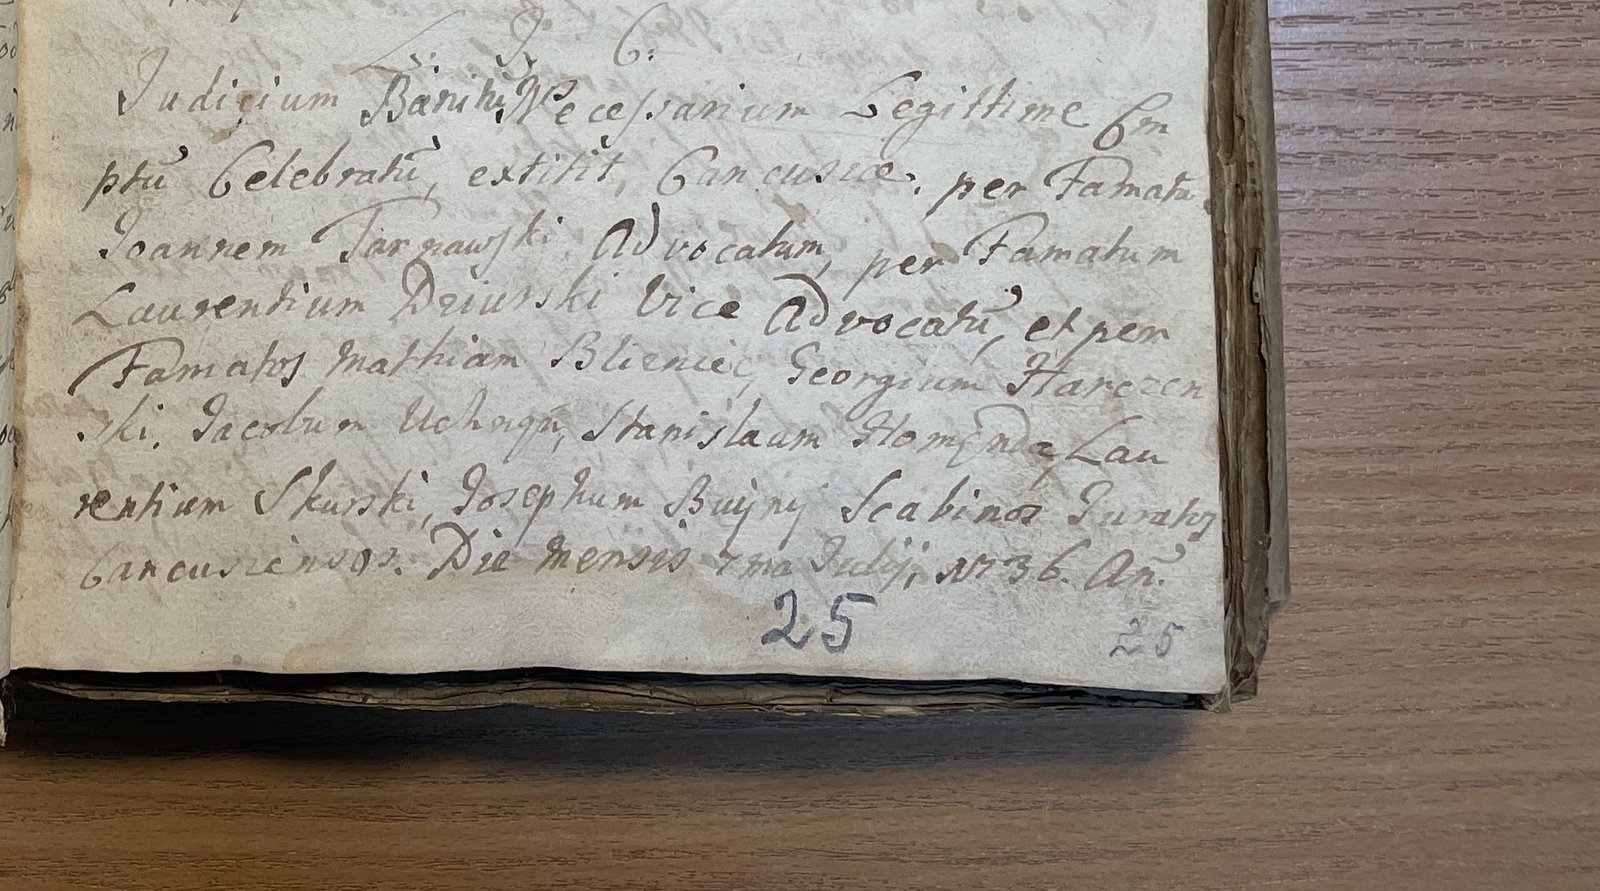 L. J. C.
Judicium Baniti Necessarium Legittime Em
ptū Celebratū, extitit, Cancusiae. per Famatū
Joannem Tarnawski Advocatum, per Famatum
Laurentium Dziurski Vice Advocatū, et per
Famatos Mathiam Blieniec, Georgium Harczen
ski, Jacobum Uchnqū, Stanislaum Homęnda, Lau
rentium Skurski, Josephum Buijnij Scabinos Juratos
Cancusienses. Die Mensis 7ma Julij, 1736. Añ.
25
25